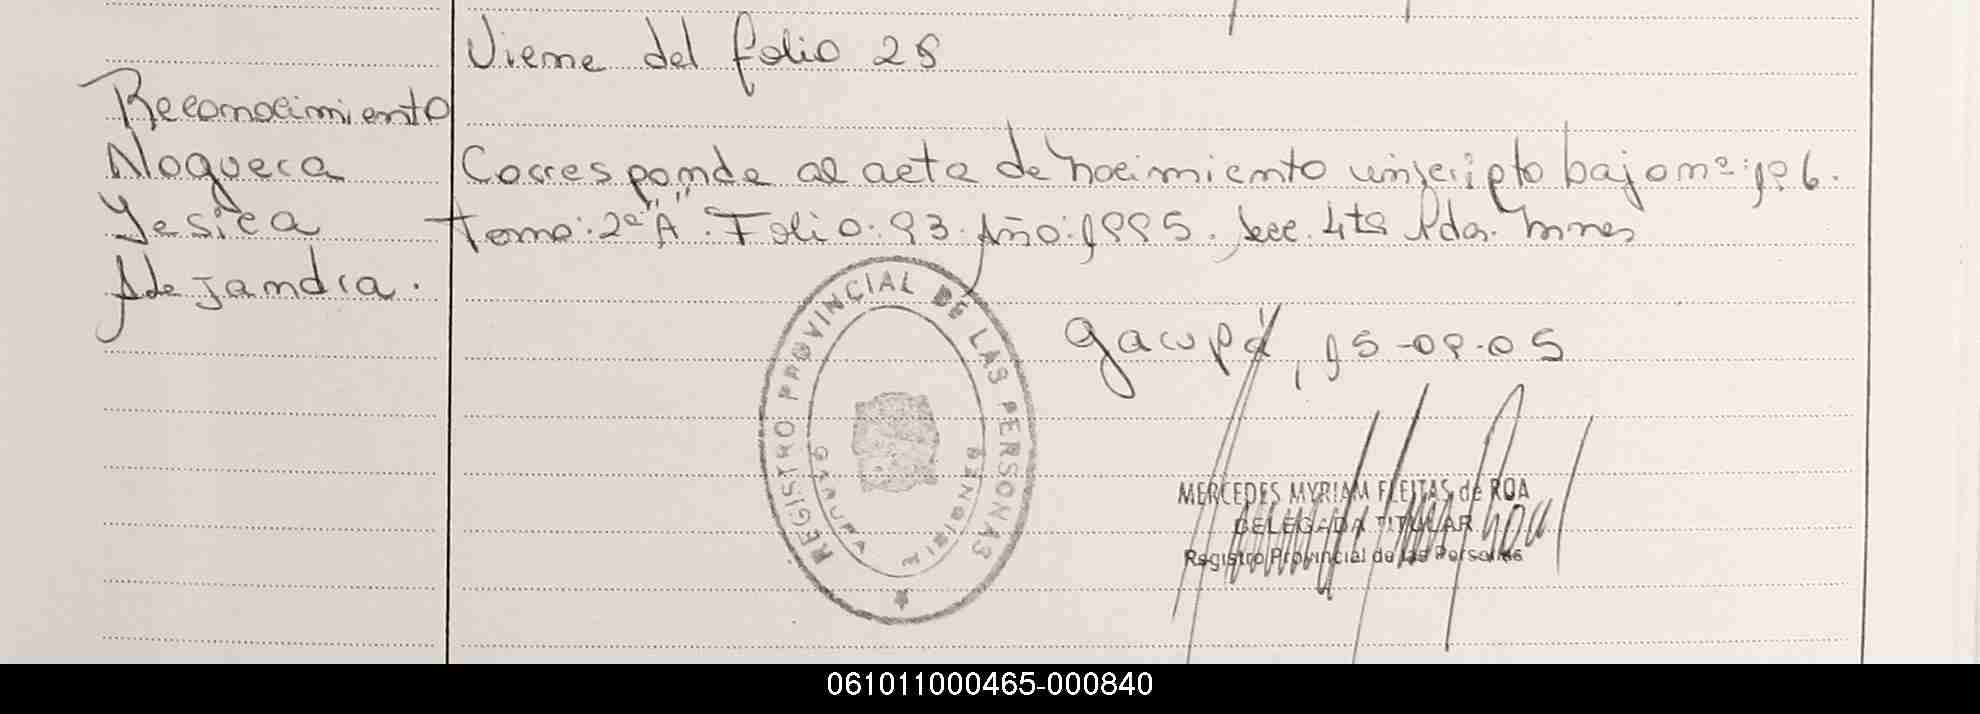 Viene del folio 28
Reconocimiento
Noguera
Yesica
Alejandra.
Corresponde al acta de nacimiento inscripto bajo nº: 196.
Tomo: 2º "A". Folio: 93. Año: 1995. Secc. 4ta Pdas. Mnes
Garupá, 15-09-05
REGISTRO PROVINCIAL DE LAS PERSONAS
GARUPA
MISIONES
MERCEDES MYRIAM FLEITAS de ROA
DELEGADA TITULAR
Registro Provincial de las Personas
061011000465-000840